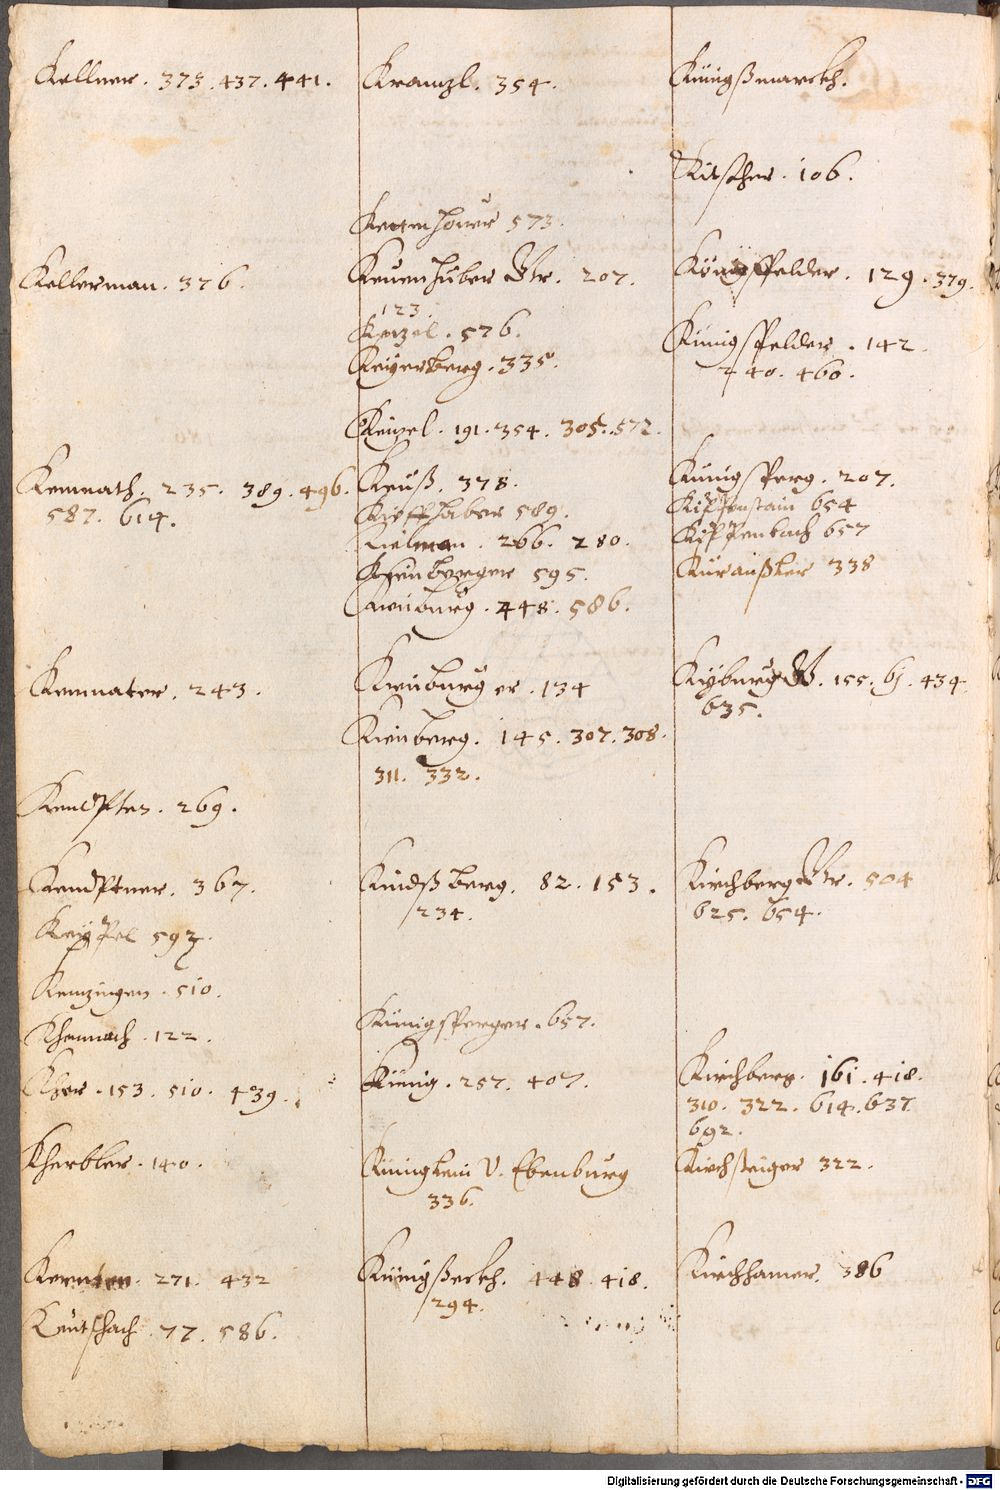 Kellner. 373. 437. 441.
Kellerman. 376.
Kemnath. 235. 389. 496.
587. 614.
Kemnater. 243.
Kendtsten. 269.
Kendtner. 367.
592.
Kenzingen. 510.
Khemnach. 122.
Kher. 153. 510. 439.
Kherbler. 140.
Kernten. 271. 432
Keutschach. 77. 586.
Kranzl. 354.
573.
Keuenhüber Gr. 207.
123.
576.
Keyerberg. 335.
191. 354. 305. 572.
Keuß. 378.
589.
Kielman. 266. 280.
595.
Kienburg. 448. 586.
Kienburger. 134
Kienberg. 145. 307. 308.
311. 332.
Kindßberg. 82. 153.
234.
Künigsperger. 657.
Künig. 257. 407.
Küniglein v. Ebenburg
336.
Künigßeckh. 448. 418.
294.
Künigßmarckh.
Kitscher. 106.
Königsfelder. 129. 379.
Künigsfelder. 142.
240. 460.
Künigsperg. 207.
Kipfenstain 654
Kippenbach 657
338
Kyburg G. 155. 61. 434.
635.
Kirchberg Gr. 504
625. 654.
Kirchberg. 161. 418.
310. 322. 614. 637.
692.
Kirchsteiger 322.
Kirchhamer. 386
Digitalisierung gefördert durch die Deutsche Forschungsgemeinschaft - DFG